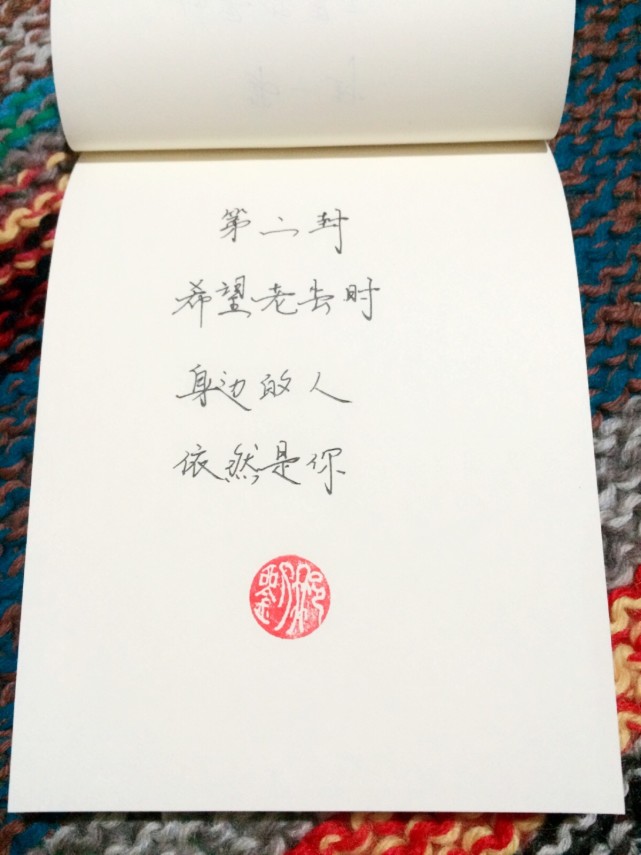 第二封
希望老去时
身边的人
依然是你